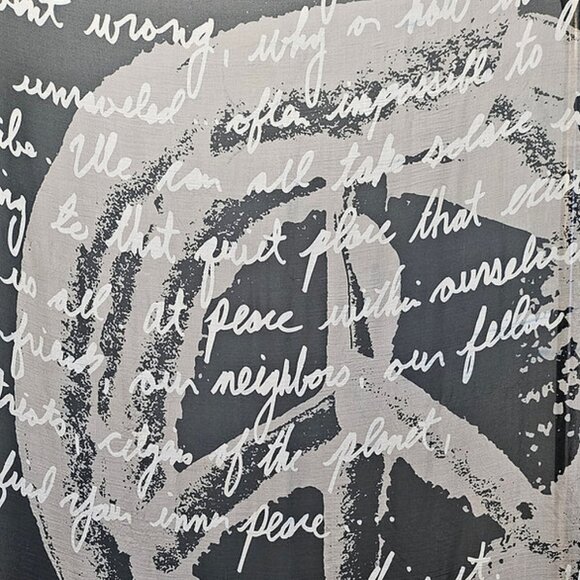 went wrong, why or how
unraveled... often impossible to
We can all take solace
to that quiet place that
us all at peace within ourselves
friends, our neighbors, our fellow
citizens of the planet,
find your inner peace...